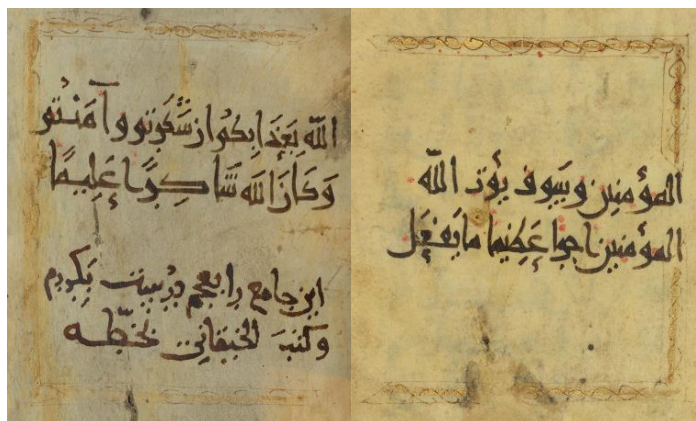 المؤمنين وسوف يؤت الله
المؤمنين اجرا عظيما ما يفعل
الله بعذابكم ان شكرتم وآمنتم
وكان الله شاكرا عليما
این جامع را بعجم درست بکردم
وکتبه الخیقانی بخطه